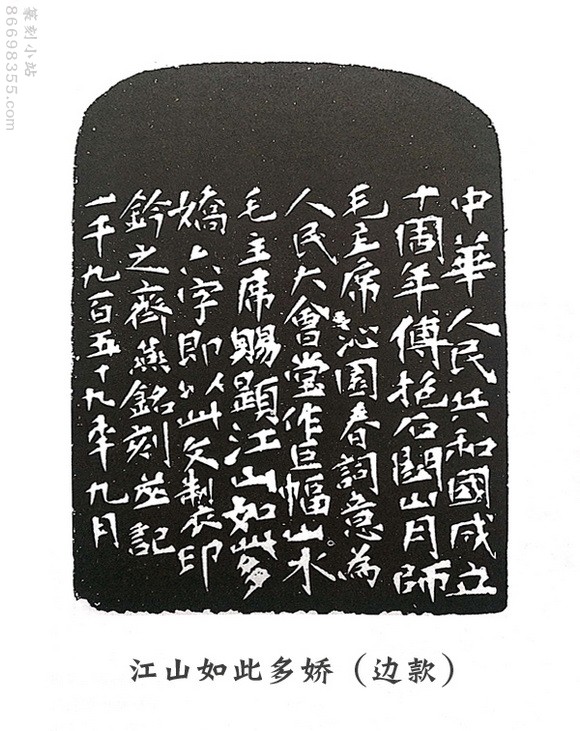 中華人民共和國成立
十周年傅抱石關山月師
毛主席沁園春詞意為
人民大會堂作巨幅山水
毛主席賜題江山如此多
嬌六字即以此文製印
鈐之齊燕銘刻並記
一千九百五十九年九月
江山如此多娇（边款）
篆刻小站
86698355.com